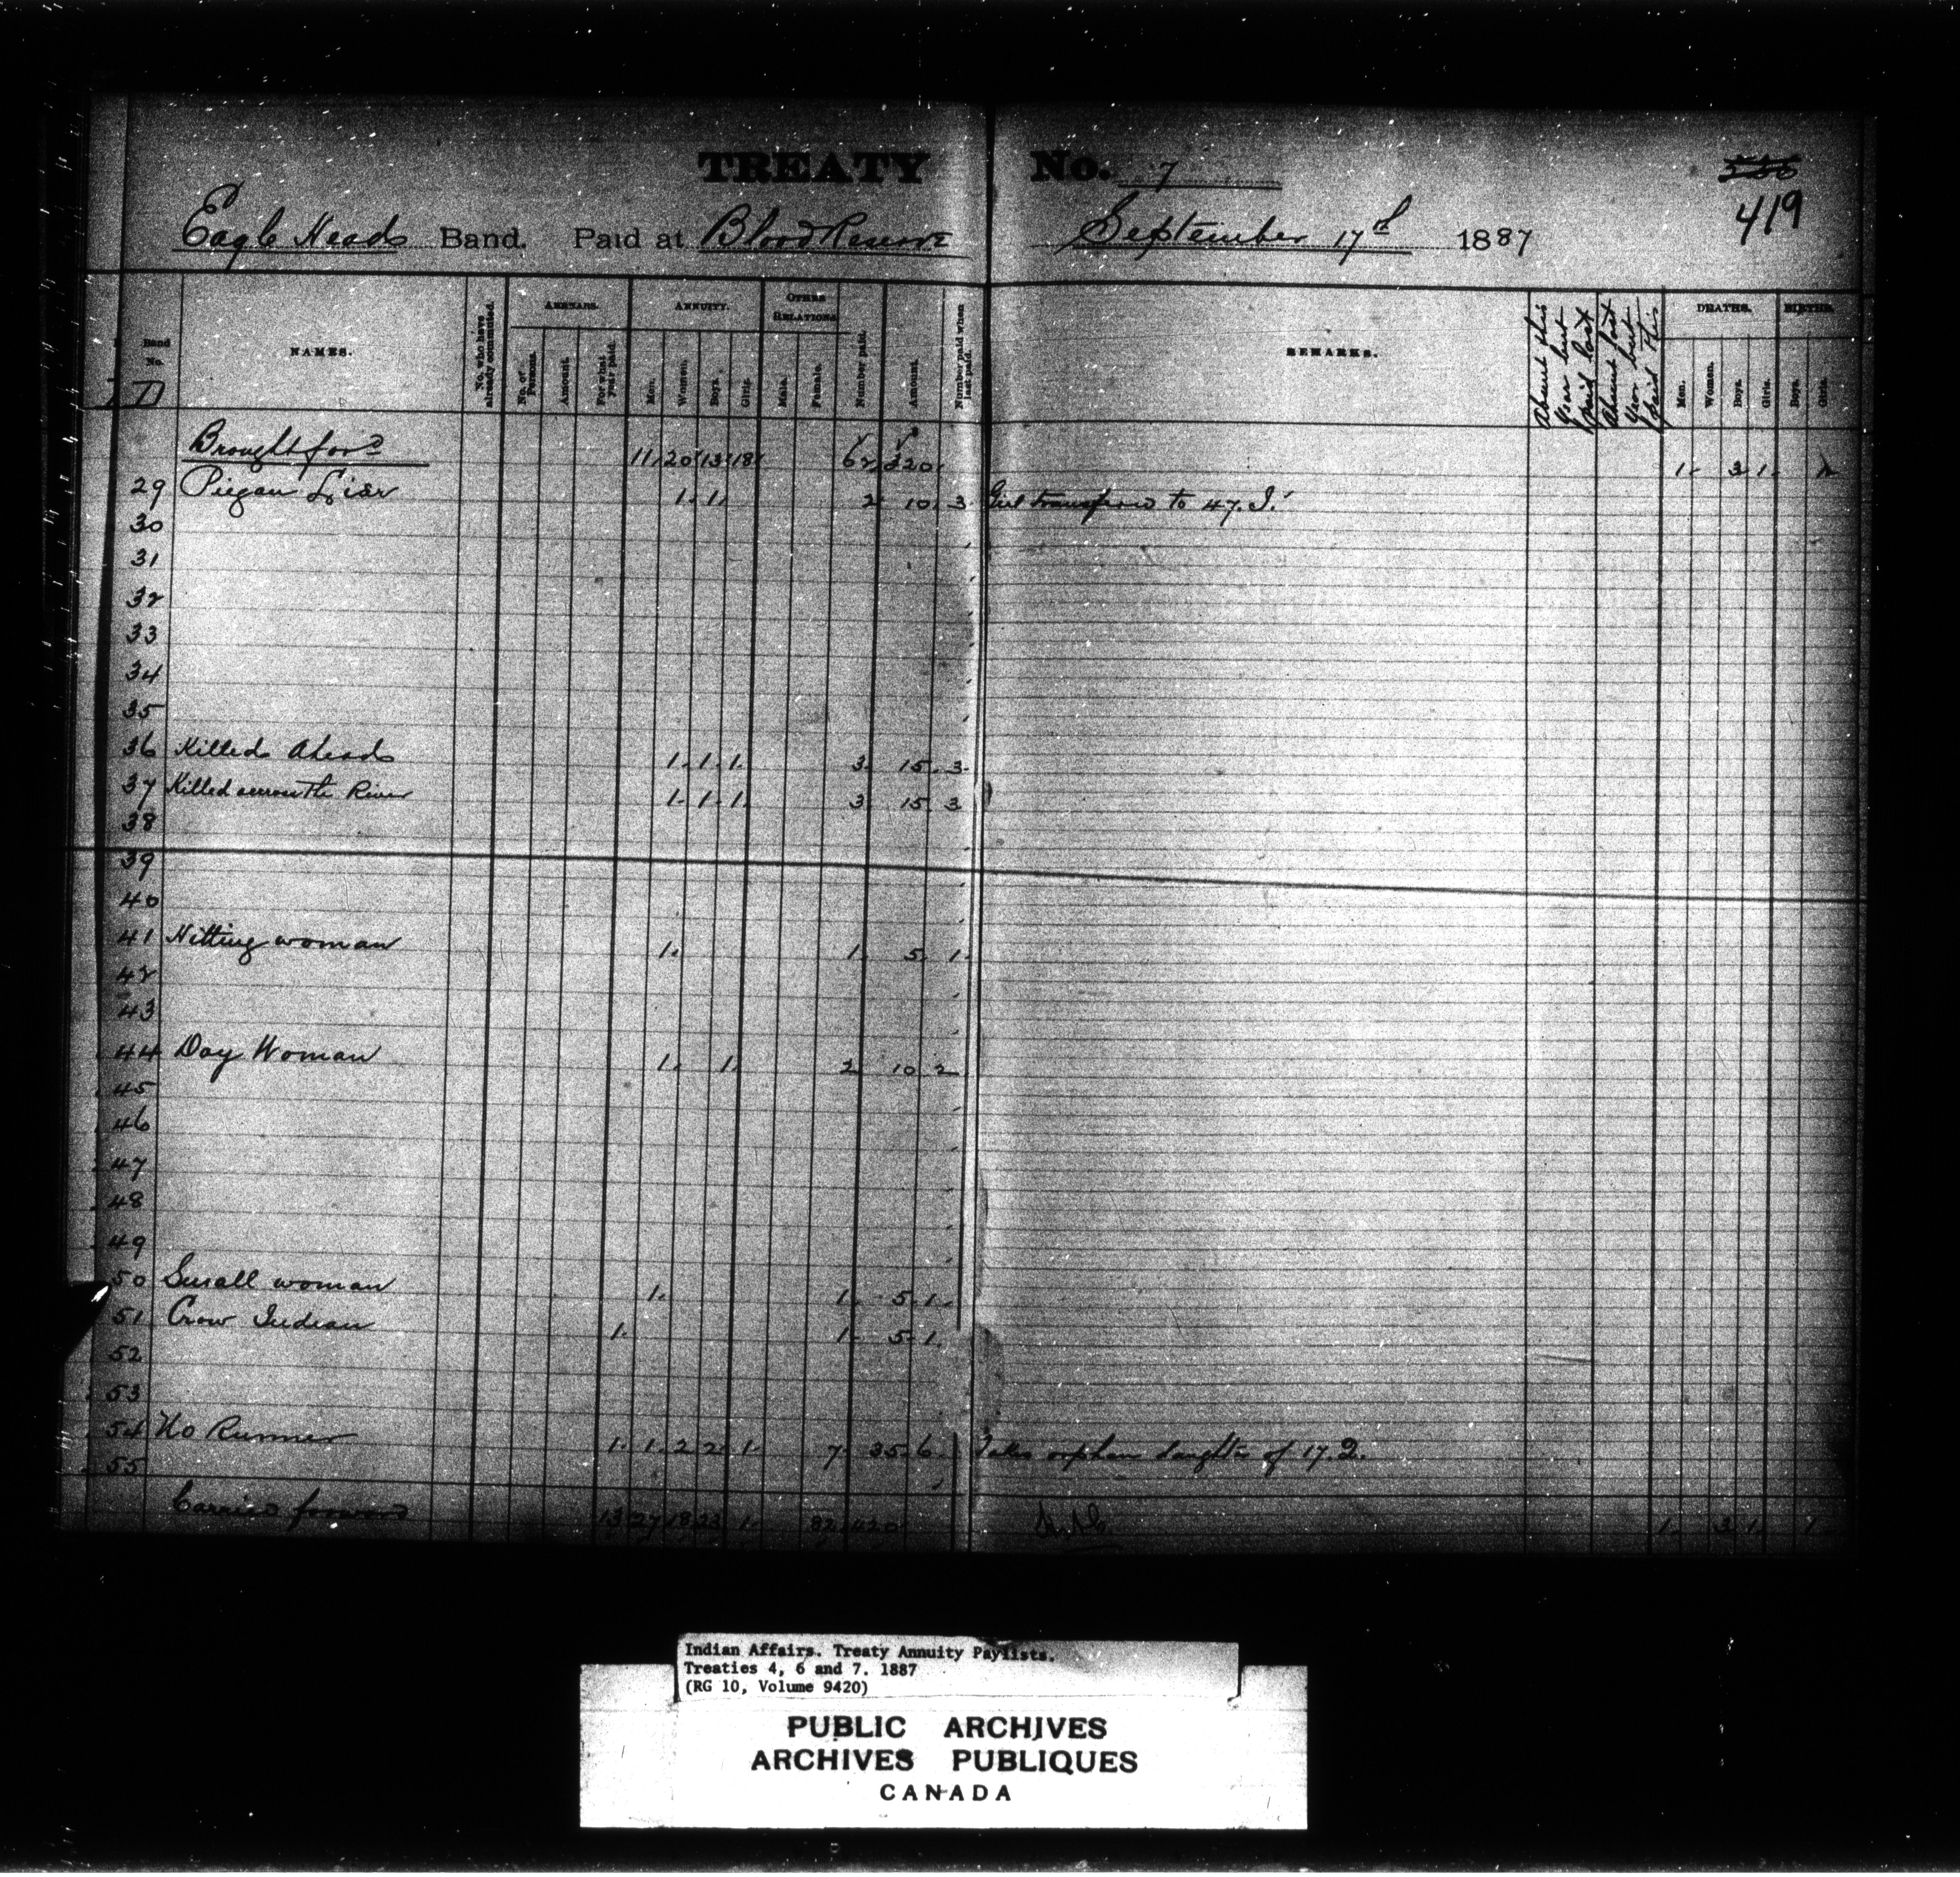 TREATY No. 7
419
Eagle Heads Band. Paid at Blood Reserve September 17th 1887
Band No. NAMES. No. who have already commuted. ARREARS. ANNUITY. OTHER RELATIONS Number paid. Amount. Number paid when last paid. REMARKS. Absent this Year but paid last Absent last Year but paid this DEATHS. BIRTHS.
No. of Persons. Amount. For what year paid. Men. Women. Boys. Girls. Male. Female. Men. Women. Boys. Girls. Boys. Girls.
D
Brought ford 11 20 13 18 62 320 1 3 1
29 Piegan Liar 1 1 2 10 3 Girl transferred to 47. I.
30
31
32
33
34
35
36 Killed Ahead 1 1 1 3 15 3
37 Killed across the River 1 1 1 3 15 3
38
39
40
41 Hitting woman 1 1 5 1
42
43
44 Day Woman 1 1 2 10 2
45
46
47
48
49
50 Small woman 1 1 5 1
51 Crow Indian 1 1 5 1
52
53
54 No Runner 1 1 2 2 1 7 35 6 Takes orphan daughter of 17.
55
Carried forward 13 27 18 23 1 82 420 1 3 1 1
Indian Affairs. Treaty Annuity Paylists.
Treaties 4, 6 and 7. 1887
(RG 10, Volume 9420)
PUBLIC ARCHIVES
ARCHIVES PUBLIQUES
CANADA